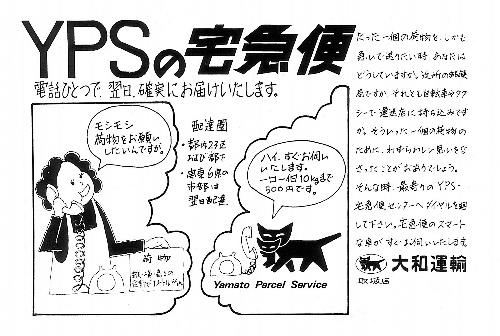 YPSの宅急便
電話ひとつで、翌日、確実にお届けいたします。
モシモシ
荷物をお願い
したいんですが。
配達圏
・都内23区
および都下
・関東6県の
市部は
翌日配達
ハイ、すぐお伺い
いたします。
一コ一付10kgまで
500円です。
荷物
Yamato Parcel Service
たった一個の荷物を、しかも
急いで送りたい時、あなたは
どうしていますか。近所の郵便
局ですか、それとも自転車やタク
シーで運送店に持ち込みです
か。そういった一個の荷物の
ために、わずらわしい思いをな
さったことがおありでしょう。
そんな時、最寄りのYPS・
宅急便センターへダイヤルを廻
して下さい。宅急便のスマート
な車がすぐお伺いいたします
大和運輸
取扱店